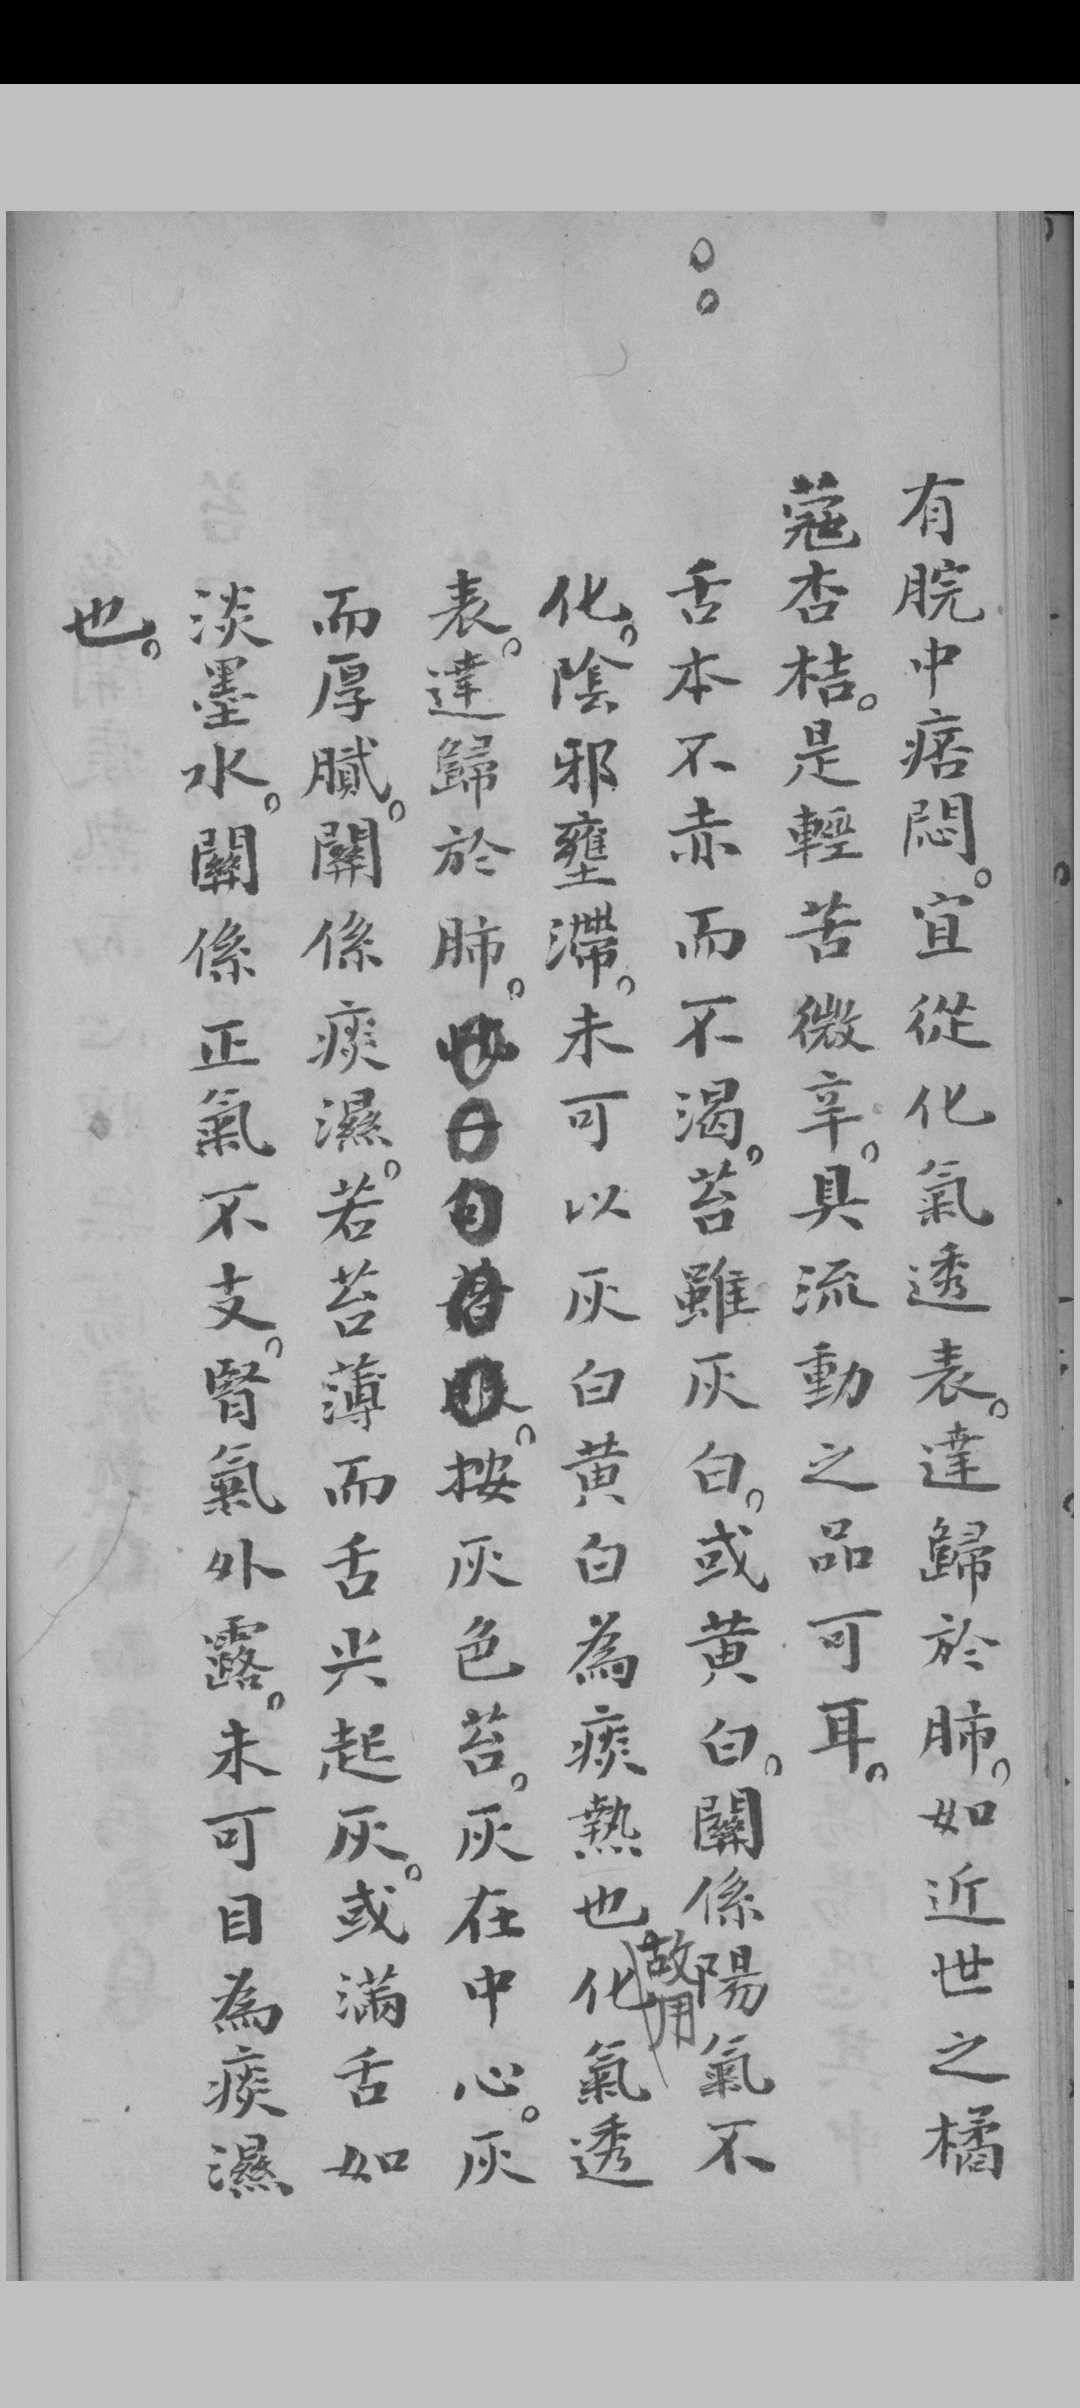 有脘中痞悶。宜從化氣透表。達歸於肺。如近世之橘
蔻杏桔。是輕苦微辛。具流動之品可耳。
舌本不赤而不渴。苔雖灰白。或黄白。關係陽氣不
化。陰邪壅滯。未可以灰白黄白為痰熱也故用化氣透
表。達歸於肺。按灰色苔。灰在中心。灰
而厚膩。關係痰濕。若苔薄而舌尖起灰。或滿舌如
淡墨水。關係正氣不支。腎氣外露。未可目為痰濕
也。